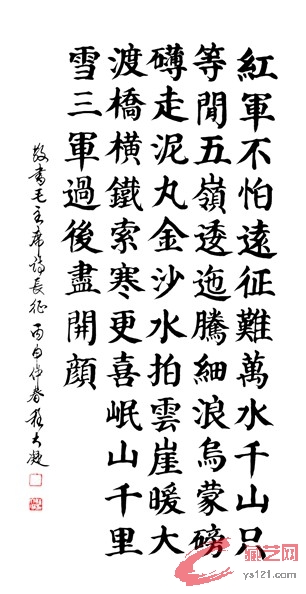 紅軍不怕遠征難萬水千山只
等閒五嶺逶迤騰細浪烏蒙磅
礴走泥丸金沙水拍雲崖暖大
渡橋橫鐵索寒更喜岷山千里
雪三軍過後盡開顏
敬書毛主席詩長征 丙申仲春
艺网
ys121.com